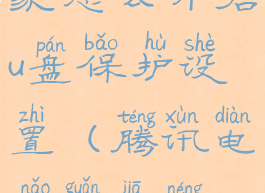 pán bǎo hù shè
u盘保护设
zhì téng xùn diàn
置(腾讯电
nǎo guǎn jiā néng